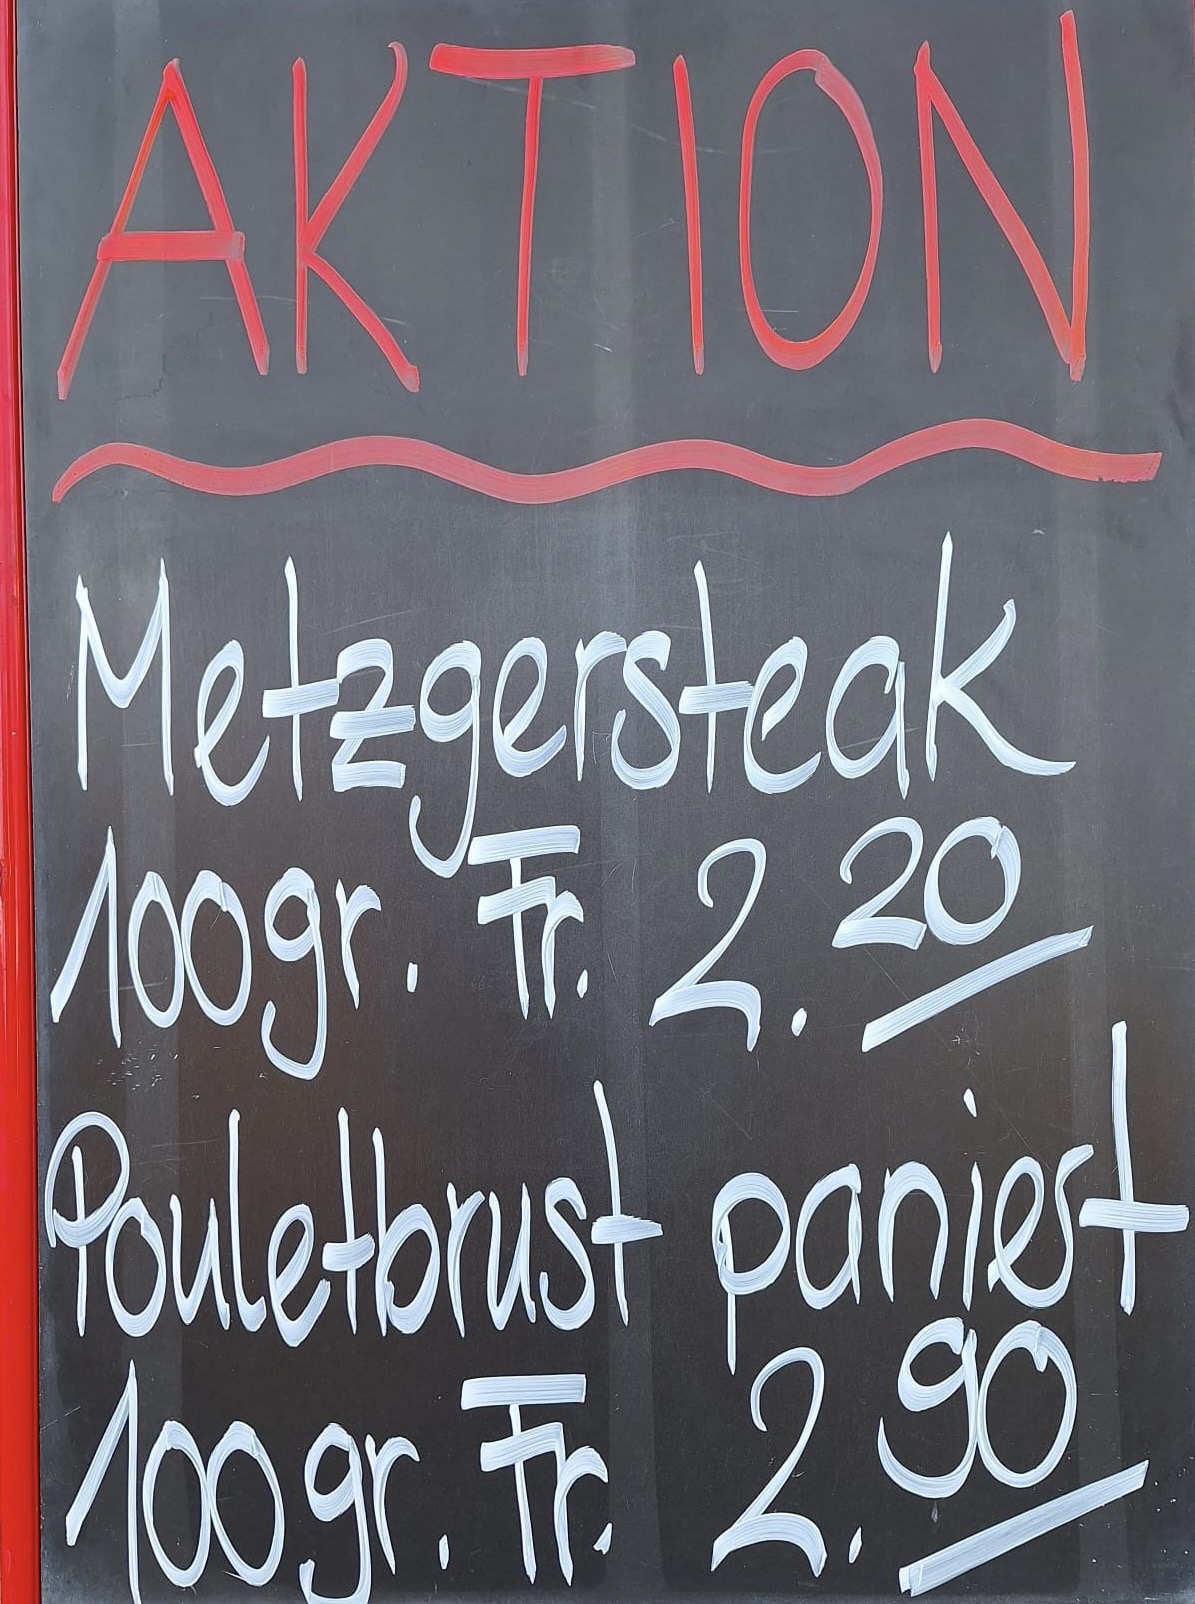 AKTION
Metzgersteak
100gr. Fr. 2.20
Pouletbrust paniert
100gr. Fr. 2.90